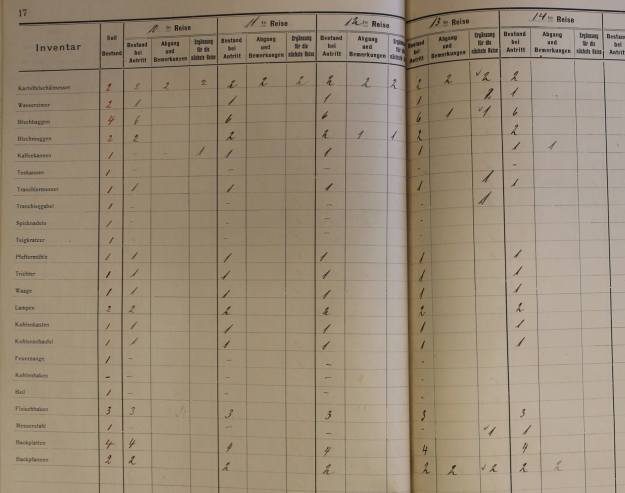 17
10 te Reise 11 te Reise 12 te Reise 13 te Reise 14 te Reise
Inventar Soll Bestand Bestand bei Antritt Abgang und Bemerkungen Ergänzung für die nächste Reise Bestand bei Antritt Abgang und Bemerkungen Ergänzung für die nächste Reise Bestand bei Antritt Abgang und Bemerkungen Bestand bei Antritt Abgang und Bemerkungen Ergänzung für die nächste Reise Bestand bei Antritt Abgang und Bemerkungen Ergänzung für die nächste Reise
Kartoffelschälmesser 2 2 2 2 2 2 2 2 2 2 2 2 2
Wassereimer 2 1 1 1 1 2 1
Blechbaggen 4 6 6 6 6 1 1 6
Blechmuggen 2 2 2 2 1 1 2 2
Kaffeekannen 1 - 1 1 1 1 1 1
Teekannen 1 - - - - -
Tranchiermesser 1 1 1 1 1 1 1
Tranchiergabel 1 - - - - 1
Spicknadeln 1 - - - -
Teigkratzer 1 - - - -
Pfeffermühle 1 1 1 1 1 1
Trichter 1 1 1 1 1 1
Waage 1 1 1 1 1 1
Lampen 2 2 2 2 2 2
Kohlenkasten 1 1 1 1 1 1
Kohlenschaufel 1 1 1 1 1 1
Feuerzange 1 - - - -
Kohlenhaken - - - - -
Beil 1 - - - -
Fleischhaken 3 3 3 3 3 3
Messerstahl 1 - - - - 1 1
Backplatten 4 4 4 4 4 4
Backpfannen 2 2 2 2 2 2 2 2 2